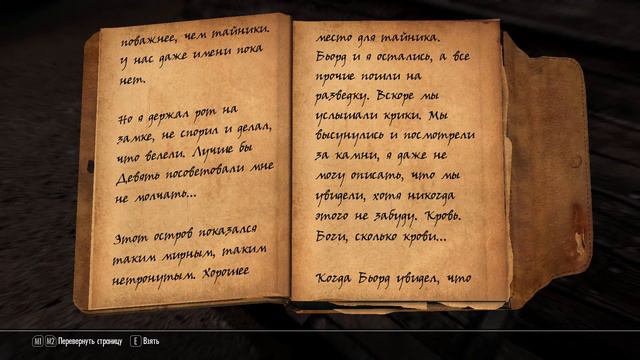 поважнее, чем тайники.
У нас даже имени пока
нет.
Но я держал рот на
замке, не спорил и делал,
что велели. Лучше бы
Девять посоветовали мне
не молчать...
Этот остров показался
таким мирным, таким
нетронутым. Хорошее
место для тайника.
Бьорд и я остались, а все
прочие пошли на
разведку. Вскоре мы
услышали крики. Мы
высунулись и посмотрели
за камни, я даже не
могу описать, что мы
увидели, хотя никогда
этого не забуду. Кровь.
Боги, сколько крови...
Когда Бьорд увидел, что
M1 M2 Перевернуть страницу E Взять